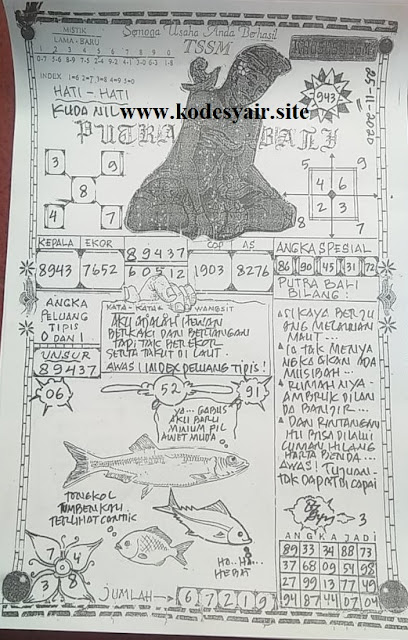 MISTIK
LAMA - BARU
1 2 3 4 5 6 7 8 9 0
Semoga Usaha Anda Berhasil
TSSM
INDEX 1=6 2=7 3=8 4=9 5=0
943
25-11-2020
HATI - HATI
KUDA NIL
www.kodesyair.site
PUTRA BALI
3 9
8
4 7
5 9
4 6
2 3
8 7
KEPALA EKOR
8943 7652
89437
60512
COP AS
1903 8276
ANGKA SPESIAL
86 90 45 31 72
ANGKA
PELUANG
TIPIS
0 DAN 1
UNSUR
89437
KATA - KATA WANGSIT
AKU ADALAH HEWAN
BERKAKI DAN BERTANGAN
TAPI TAK BEREKOR
SERTA TAKUT DI LAUT.
AWAS! INDEX PELUANG TIPIS!
PUTRA BALI
BILANG:
SI KAYA BERJU
ANG MELAWAN
MAUT...
IA TAK MENYA
NGKA AKAN ADA
MUSIBAH...
RUMAH NYA-
AMBRUK DILAN
DA BANJIR...
DAN RINTANGAN
ITU BISA DILALUI
CUMAN HILANG
HARTA BENDA...
AWAS! TUJUAN-
TAK DAPAT DI CAPAI
06
52
91
YA... GABUS
AKU BARU
MINUM PIL
AWET MUDA
TONGKOL
TUMBEN KALI
TERLIHAT CANTIK
HA.. HA..
HEBAT
3
7 4
3 8
JUMLAH
6 7 2 1 9
ANGKA JADI
89 33 34 88 73
37 68 09 54 98
27 99 13 77 49
94 87 44 07 04